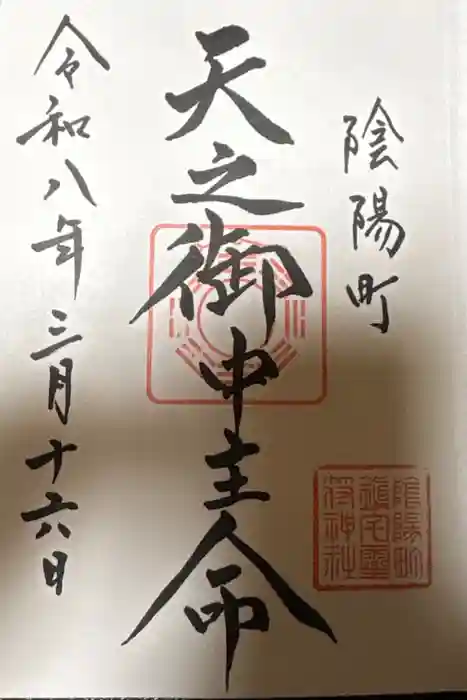 陰陽町
天之御中主命
令和八年三月十六日
陰陽町
鎮宅霊
符神社